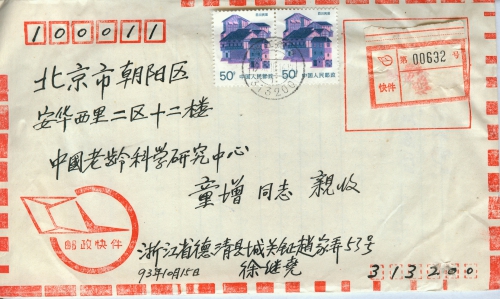 100011
50分 中国人民邮政
50分 中国人民邮政
313200
第 00632 号
快件
北京市朝阳区
安华西里二区十二楼
中國老龄科学研究中心
童增 同志 親收
邮政快件
浙江省德清县城关镇趙家弄53号
93年10月15日 徐继尧
313200